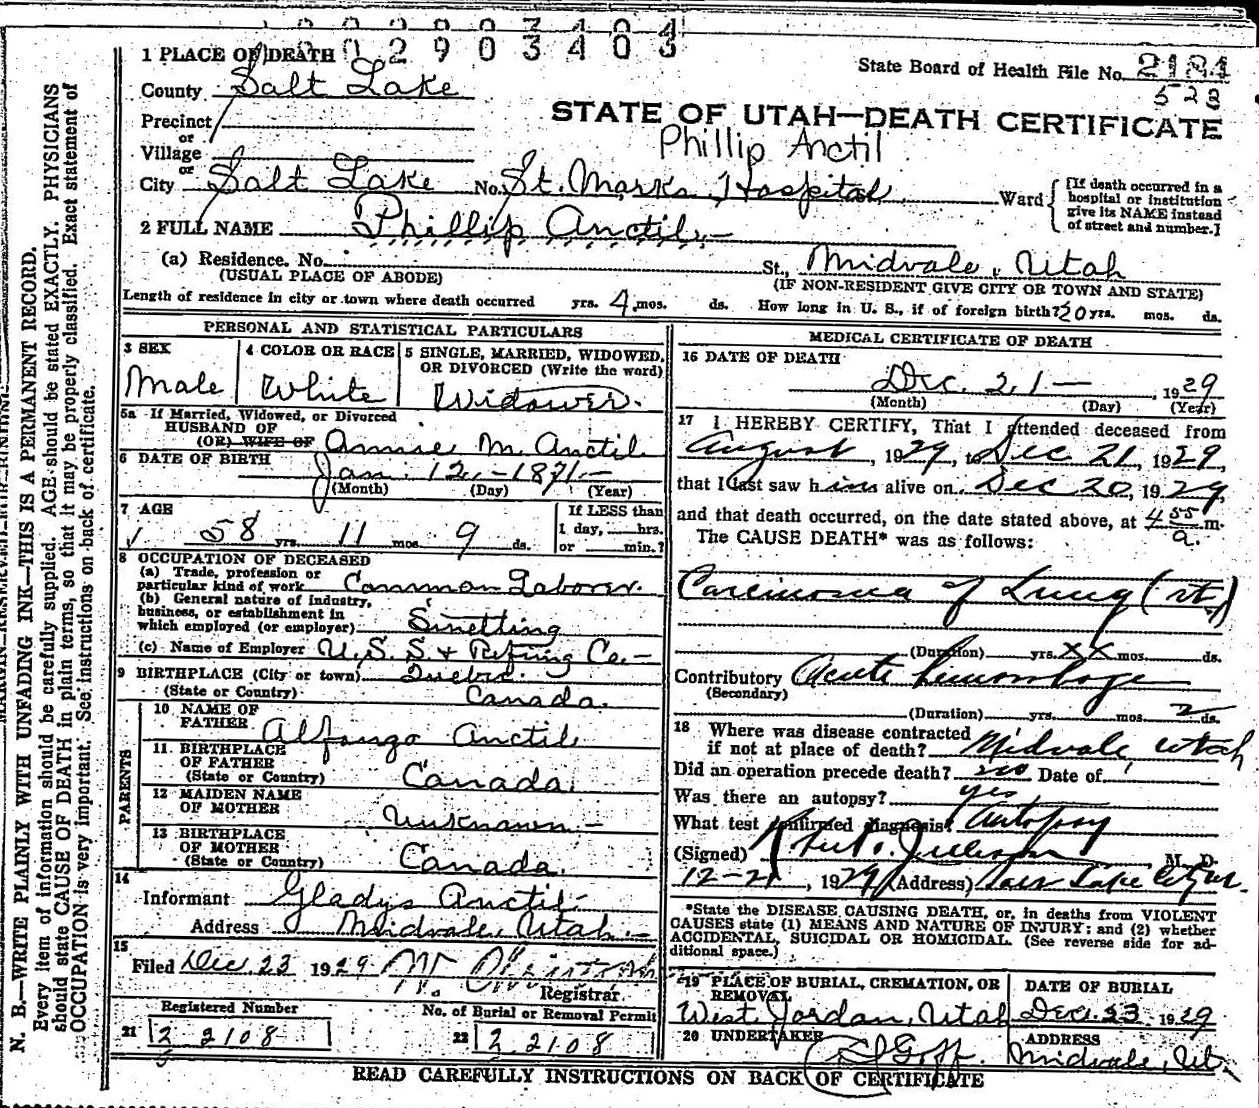 002903403
1 PLACE OF DEATH
State Board of Health File No. 2184
County Salt Lake
528
STATE OF UTAH—DEATH CERTIFICATE
Precinct
or
Village
Phillip Anctil
or
City Salt Lake No. St. Marks Hospital Ward
[If death occurred in a hospital or institution give its NAME instead of street and number.]
2 FULL NAME Phillip Anctil
(a) Residence. No. St., Midvale, Utah
(USUAL PLACE OF ABODE) (IF NON-RESIDENT GIVE CITY OR TOWN AND STATE)
Length of residence in city or town where death occurred yrs. 4 mos. ds. How long in U. S., if of foreign birth? 50 yrs. mos. ds.
PERSONAL AND STATISTICAL PARTICULARS
3 SEX
Male
4 COLOR OR RACE
White
5 SINGLE, MARRIED, WIDOWED, OR DIVORCED (Write the word)
Widower.
5a If Married, Widowed, or Divorced
HUSBAND OF
(OR) WIFE OF Annie M. Anctil
6 DATE OF BIRTH Jan. 12 - 1871
(Month) (Day) (Year)
7 AGE
58 yrs. 11 mos. 9 ds.
If LESS than
1 day, hrs.
or min.?
8 OCCUPATION OF DECEASED
(a) Trade, profession or
particular kind of work Common Laborer.
(b) General nature of industry,
business, or establishment in
which employed (or employer) Smelting
(c) Name of Employer U.S.S. & Refining Co.
9 BIRTHPLACE (City or town) Quebec.
(State or Country) Canada.
PARENTS
10 NAME OF
FATHER Alfango Anctil
11 BIRTHPLACE
OF FATHER
(State or Country) Canada.
12 MAIDEN NAME
OF MOTHER Unknown
13 BIRTHPLACE
OF MOTHER
(State or Country) Canada.
14
Informant Gladys Anctil
Address Midvale, Utah
15
Filed Dec. 23 1929
Registrar
Registered Number
21 2 2108
No. of Burial or Removal Permit
22 2 2108
MEDICAL CERTIFICATE OF DEATH
16 DATE OF DEATH
Dec. 21 — , 1929
(Month) (Day) (Year)
17 I HEREBY CERTIFY, That I attended deceased from
August , 1929, to Dec 21, 1929,
that I last saw him alive on Dec 20, 1929,
and that death occurred, on the date stated above, at 4 55 a. m.
The CAUSE DEATH* was as follows:
Carcinoma of Lung (rt.)
(Duration) yrs. XX mos. ds.
Contributory Acute hemorrhage
(Secondary)
(Duration) yrs. mos. 2 ds.
18 Where was disease contracted
if not at place of death? Midvale, Utah
Did an operation precede death? no Date of
Was there an autopsy? yes
What test confirmed diagnosis? Autopsy
(Signed) M. D.
12-21, 1929 (Address) Salt Lake City, Ut.
*State the DISEASE CAUSING DEATH, or, in deaths from VIOLENT
CAUSES state (1) MEANS AND NATURE OF INJURY; and (2) whether
ACCIDENTAL, SUICIDAL OR HOMICIDAL. (See reverse side for ad-
ditional space.)
19 PLACE OF BURIAL, CREMATION, OR
REMOVAL
West Jordan, Utah
DATE OF BURIAL
Dec. 23 1929
20 UNDERTAKER
Goff.
ADDRESS
Midvale, Ut.
READ CAREFULLY INSTRUCTIONS ON BACK OF CERTIFICATE
N. B.—WRITE PLAINLY WITH UNFADING INK—THIS IS A PERMANENT RECORD.
Every item of information should be carefully supplied. AGE should be stated EXACTLY. PHYSICIANS
should state CAUSE OF DEATH in plain terms, so that it may be properly classified. Exact statement of
OCCUPATION is very important. See instructions on back of certificate.